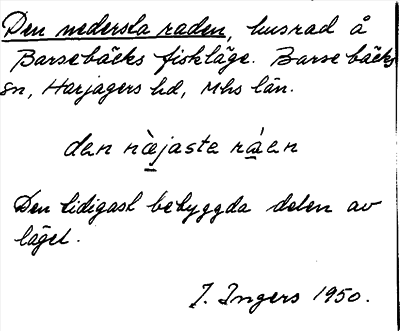 Den nedersta raden, husrad å
Barsebäcks fiskläge. Barsebäcks
sn, Harjagers hd, Mhs län.
den nèjaste ràen
Den tidigast bebyggda delen av
läget.
I. Ingers 1950.